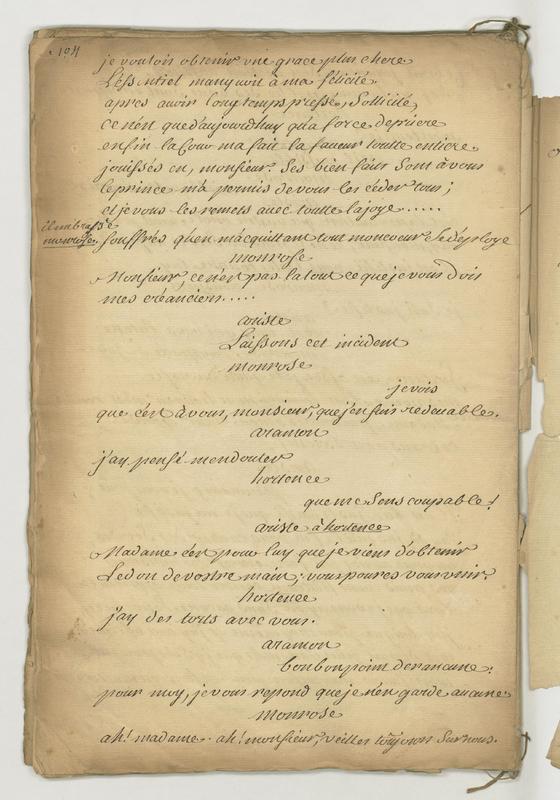 104
je voulois obtenir une grace plus chere
L'essentiel manquoit à ma félicité.
apres avoir longtemps pressé, Sollicité,
ce n'est que d'aujourdhuy qu'a force de priere
enfin la Cour m'a fait la faveur toutte entiere
jouissés en, monsieur. Ses bien faits Sont à vous
le prince m'a permis de vous les céder tous;
et je vous les remets avec toutte la joye.....
il embrasse
monrose.
Souffrés qu'en m'acquittant tout mon coeur Se déploye
monrose
Monsieur, ce n'est pas la tout ce que je vous dois
mes créanciers.....
ariste
Laissons cet incident
monrose
je vois
que c'est à vous, monsieur, que j'en suis redevable.
aramon
j'ay pensé m'en douter
hortence
que me Sens coupable!
ariste à hortence
Madame c'est pour luy que je viens d'obtenir
Le don de vostre main; vous pourés vous unir.
hortence
j'ay des torts avec vous.
aramon
bon bon point de rancune:
pour moy, je vous repond que je n'en garde aucune
monrose
ah! madame. ah! monsieur, veillés toujours Sur nous.